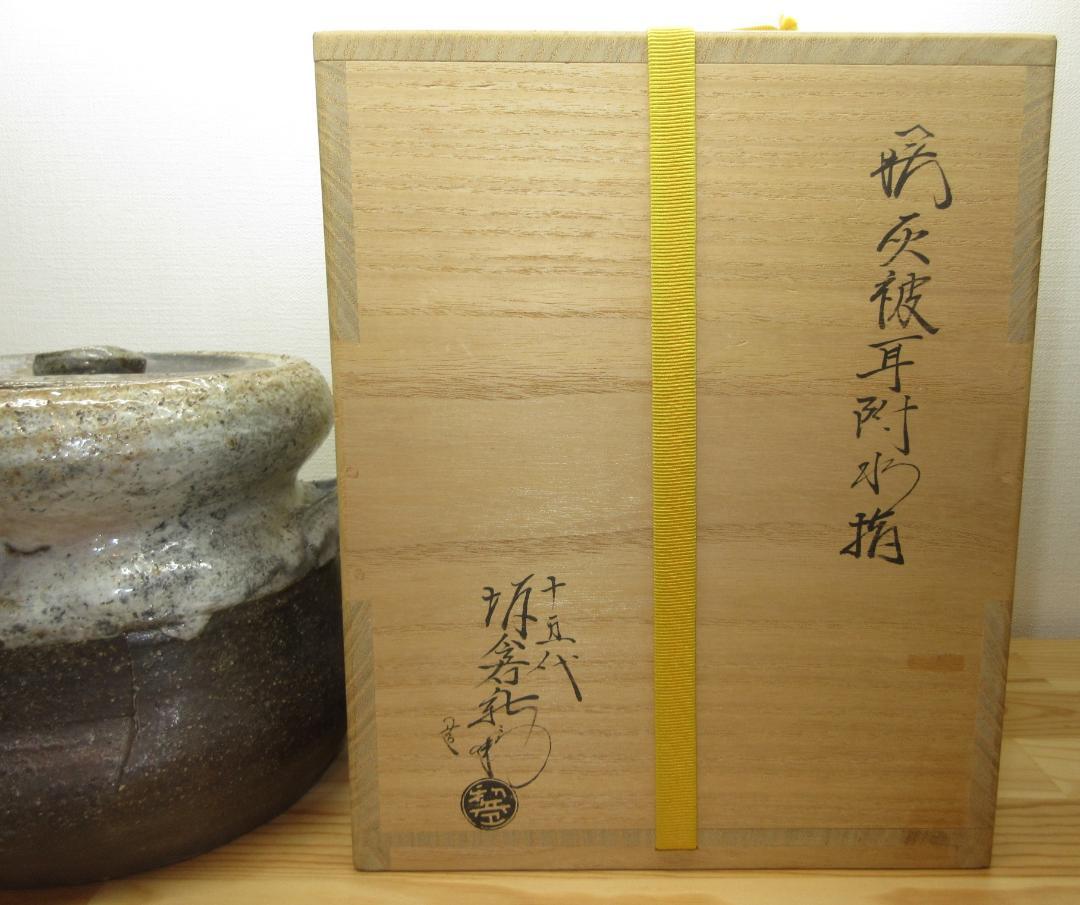 灰被耳附水指
十五代
坂倉新兵衛
造